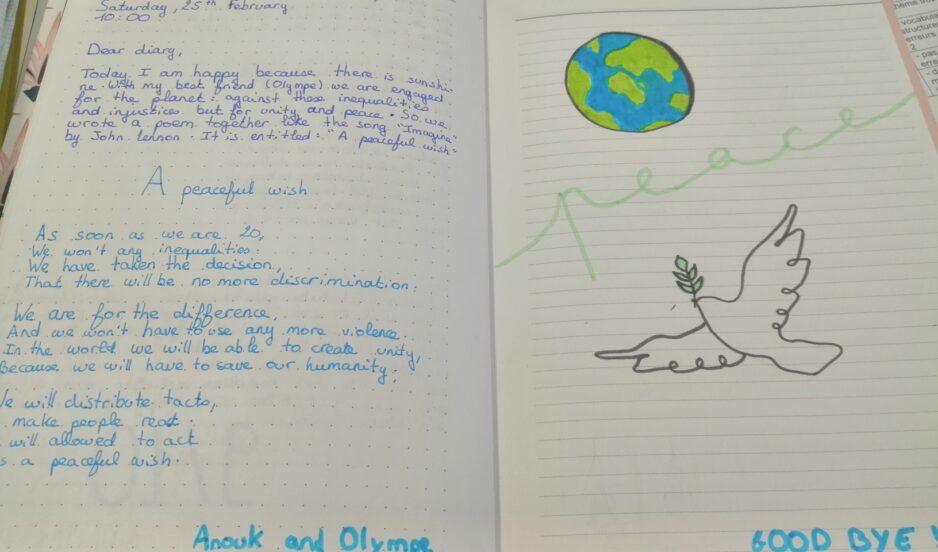 Saturday, 25th February
10:00
Dear diary,
Today I am happy because there is sunshi
ne. With my best friend (Olympe) we are engaged
for the planet: against those inequalities
and injustices but for unity and peace. So we
wrote a poem together like the song "Imagine"
by John Lennon. It is entitled: "A peaceful wish.
A peaceful wish
As soon as we are 20,
We won't any inequalities.
We have taken the decision,
That there will be no more discrimination.
We are for the difference,
And we won't have to use any more violence.
In the world we will be able to create unity,
Because we will have to save our humanity.
We will distribute tacts,
make people react.
will allowed to act
a peaceful wish.
Anouk and Olympe
peace
GOOD BYE !
vocabula
structure
erreurs
2
- pas